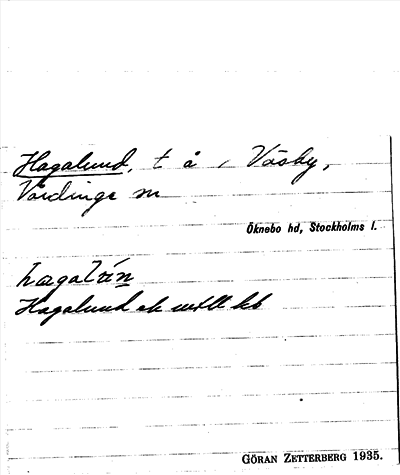 Hagalund, t å, Väsby,
Vårdinge sn
Öknebo hd, Stockholms l.
Hagalund ek
GÖRAN ZETTERBERG 1935.